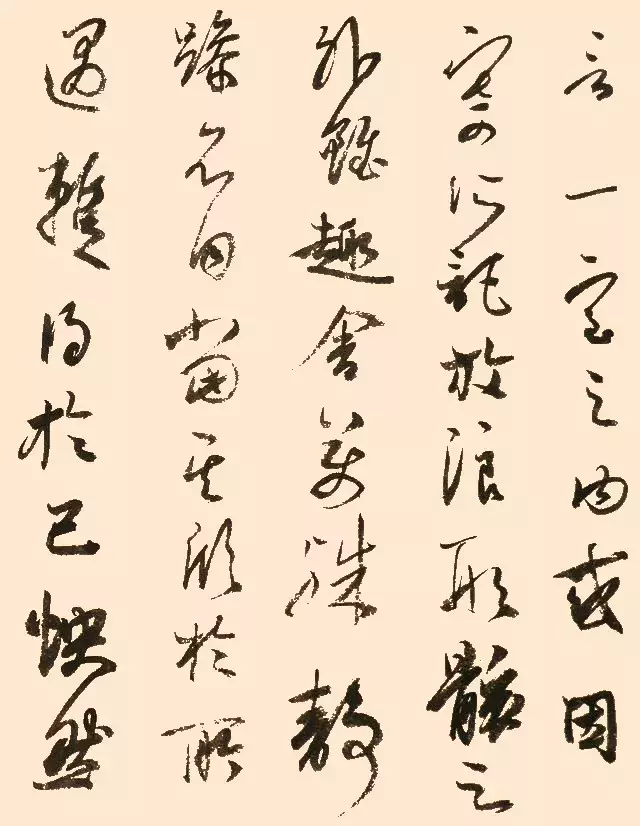 言一室之内或因
寄所託放浪形骸之
外雖趣舍萬殊静
躁不同當其欣於所
遇暫得於己怏然